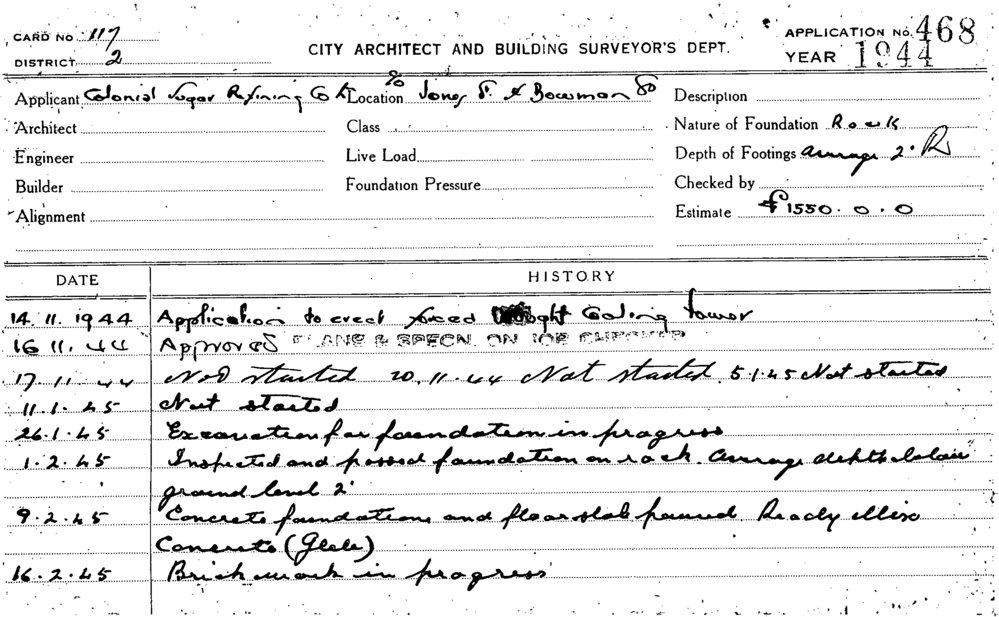 CARD No 117
DISTRICT 2
CITY ARCHITECT AND BUILDING SURVEYOR'S DEPT.
APPLICATION No. 468
YEAR 1944
Applicant Colonial Sugar Refining Co Ltd
Location c/o Jones St & Bowman St
Description
Architect
Class
Nature of Foundation Rock
Engineer
Live Load
Depth of Footings average 2'
Builder
Foundation Pressure
Checked by
Alignment
Estimate £1550.0.0
DATE HISTORY
14.11.1944 Application to erect forced Cooling tower
16 11.44 Approved PLANS & SPECN. ON JOB CHECKED
17.11.44 Not started 20.11.44 Not started. 5.1.45 Not started
11.1.45 Not started
26.1.45 Excavation for foundation in progress
1.2.45 Inspected and passed foundation on rock. Average depth below
ground level 2'
9.2.45 Concrete foundations and floor slab poured Ready Mix
Concrete (Glebe)
16.2.45 Brickwork in progress